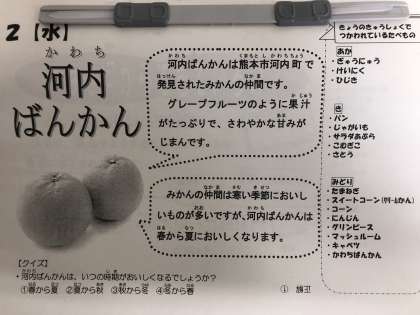 2【水】
かわち
河内
ばんかん
かわち くまもと し かわちちょう
河内ばんかんは熊本市河内町で
はっけん なかま
発見されたみかんの仲間です。
かじゅう
グレープフルーツのように果汁
あま
がたっぷりで、さわやかな甘みが
じまんです。
なかま さむ きせつ
みかんの仲間は寒い季節においし
おお かわち
いものが多いですが、河内ばんかんは
はる なつ
春から夏においしくなります。
【クイズ】
かわち じき
・河内ばんかんは、いつの時期がおいしくなるでしょうか？
①春から夏 ②夏から秋 ③秋から冬 ④冬から春
正解 ①
きょうのきゅうしょくで
つかわれているたべもの
あか
・ぎゅうにゅう
・けいにく
・ひじき
き
・パン
・じゃがいも
・サラダあぶら
・こむぎこ
・さとう
みどり
・たまねぎ
・スイートコーン(クリームかん)
・コーン
・にんじん
・グリンピース
・マッシュルーム
・キャベツ
・かわちばんかん